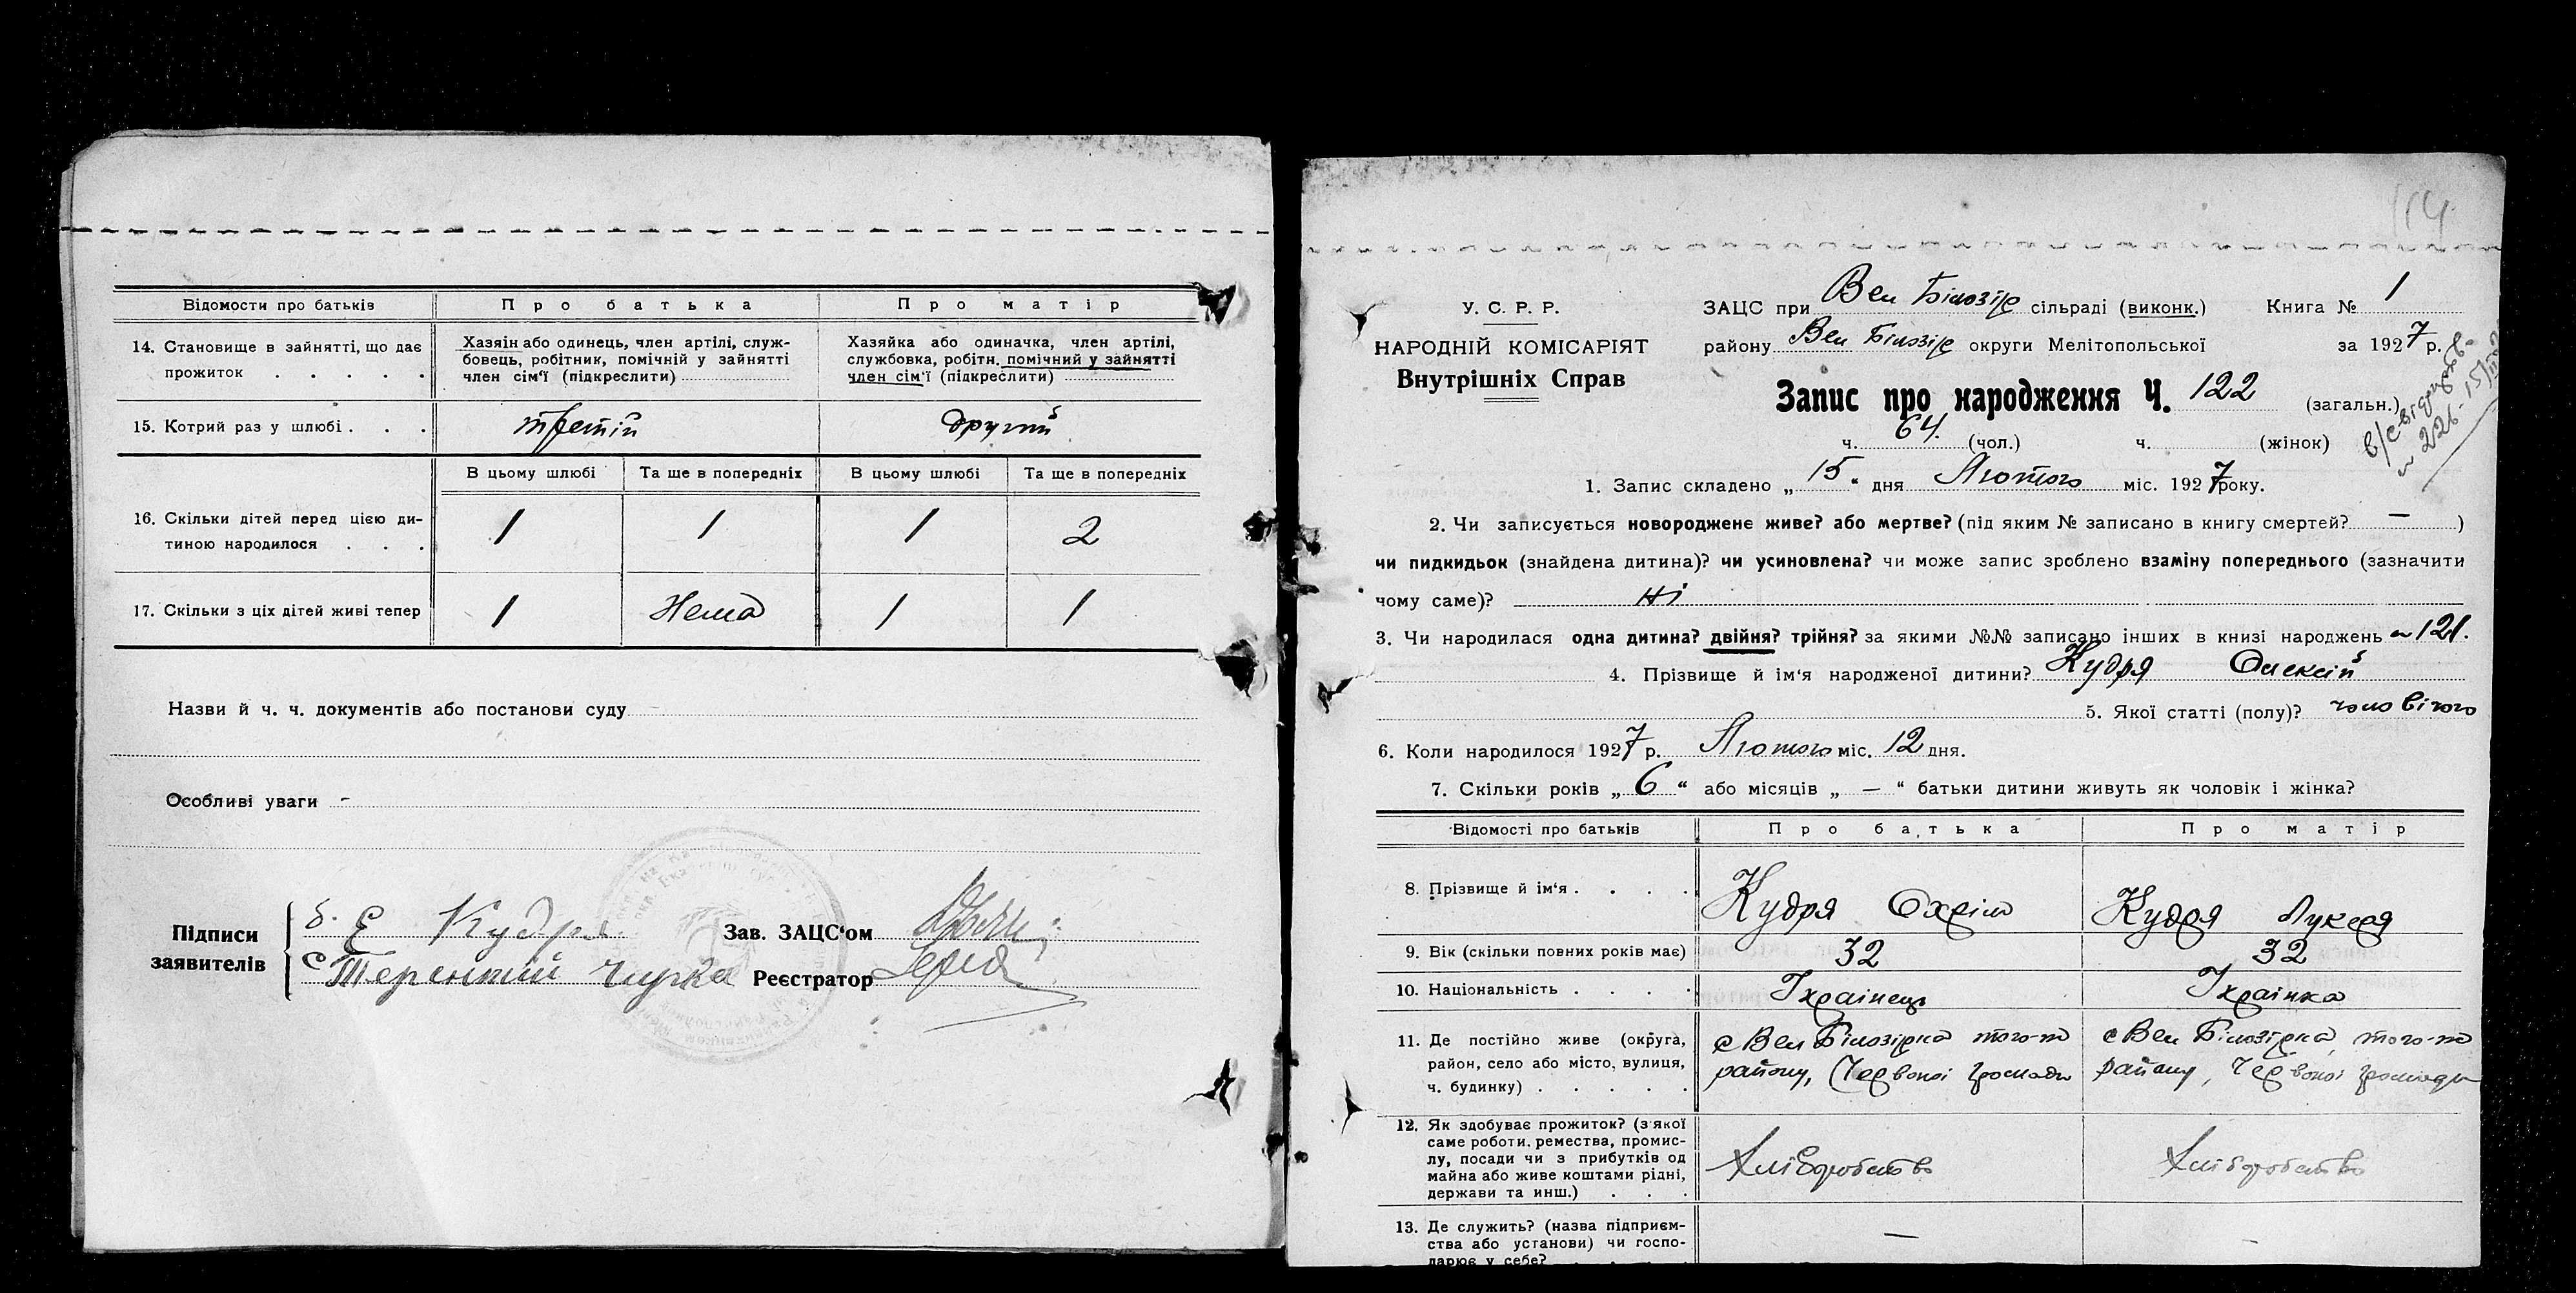 Відомости про батьків Про батька Про матір
14. Становище в зайнятті, що дає прожиток . . . . .
Хазяін або одинець, член артілі, служ-
бовець, робітник, помічній у зайнятті
член сім'ї (підкреслити)
Хазяйка або одиначка, член артілі,
службовка, робітн. помічний у зайнятті
член сім'ї (підкреслити)
15. Котрий раз у шлюбі . . . третій другий
В цьому шлюбі Та ще в попередніх В цьому шлюбі Та ще в попередніх
16. Скільки дітей перед цією ди-
тиною народилося . . . 1 1 1 2
17. Скільки з ціх дітей живі тепер 1 Нема 1 1
Назви й ч. ч. документів або постанови суду
Особливі уваги -
Підписи
заявителів
б. Є Кудря
с Терентий Чирка
Зав. ЗАЦС'ом
Реєстратор
114
У. С. Р. Р.
НАРОДНІЙ КОМІСАРІЯТ
Внутрішніх Справ
ЗАЦС при Вел Білозір сільраді (виконк.) Книга № 1
району Вел Білозір округи Мелітопольської за 1927 р.
Запис про народження Ч. 122 (загальн.)
ч. 64. (чол.) ч. (жінок)
№ 226 - 15/
1. Запис складено „ 15 “ дня Лютого міс. 1927 року.
2. Чи записується новороджене живе? або мертве? (під яким № записано в книгу смертей? — )
чи пидкидьок (знайдена дитина)? чи усиновлена? чи може запис зроблено взаміну попереднього (зазначити
чому саме)? Ні
3. Чи народилася одна дитина? двійня? трійня? за якими №№ записано інших в книзі народжень № 121.
4. Прізвище й ім'я народженої дитини? Кудря Олексій
5. Якої статті (полу)? чоловічого
6. Коли народилося 1927 р. Лютого міс. 12 дня.
7. Скільки років „ 6 “ або місяців „ — “ батьки дитини живуть як чоловік і жінка?
Відомості про батьків Про батька Про матір
8. Прізвище й ім'я . . . . Кудря Охрім Кудря Лукеря
9. Вік (скільки повних років має) 32 32
10. Національність . . . . Українець Українка
11. Де постійно живе (округа,
район, село або місто, вулиця,
ч. будинку) . . . . .
с Вел Білозірка того-ж
району, Червоної громади
с Вел Білозірка, того-ж
району, Червоної громади
12. Як здобуває прожиток? (з якої
саме роботи, ремества, промис-
лу, посади чи з прибутків од
майна або живе коштами рідні,
держави та инш.) . . .
Хліборобство Хліборобство
13. Де служить? (назва підприєм-
ства або установи) чи госпо-
дарює у себе? . . . . —